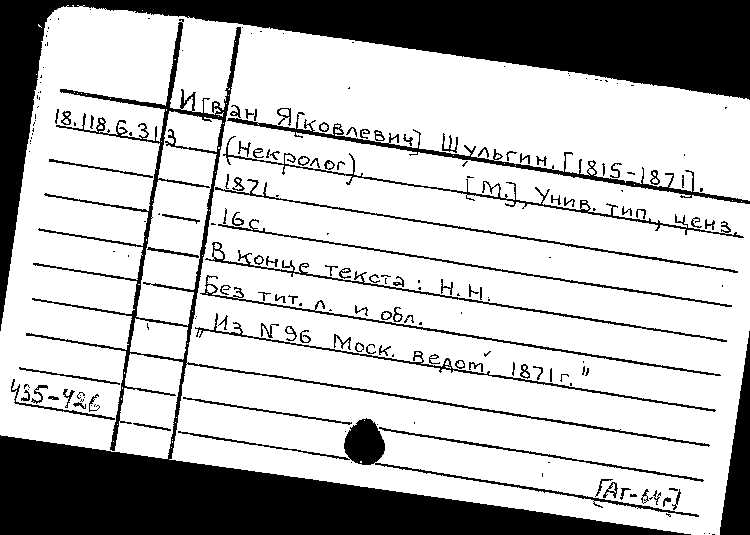 И[в]ан Я[ковлевич] Шульгин. [1815-1871].
18.118.6.313
(Некролог). [М.], Унив. тип., ценз.
1871.
16 с.
В конце текста: Н.Н.
Без тит. л. и обл.
„Из № 96 Моск. ведом. 1871 г."
435-426
[Аг-64г]